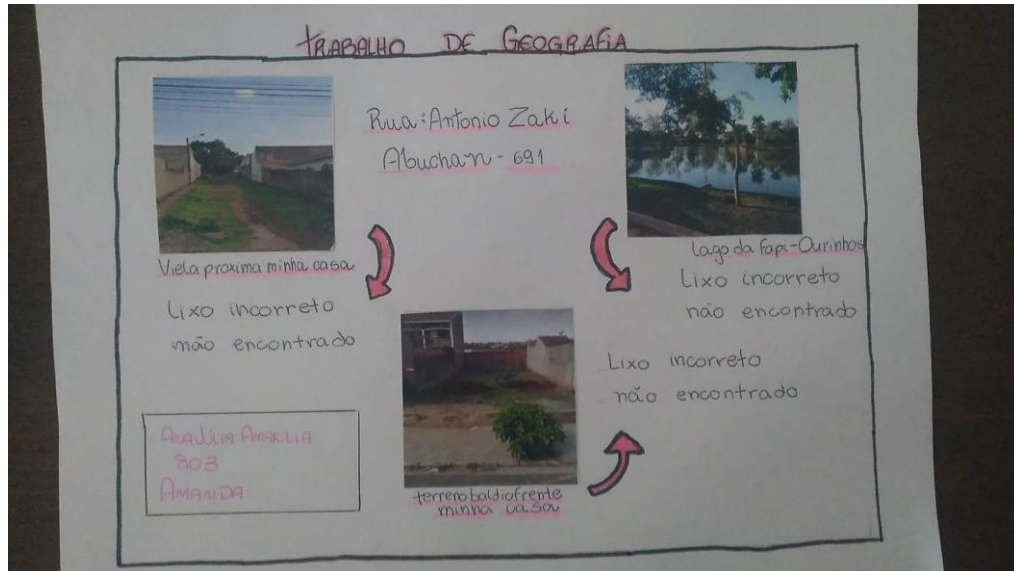 TRABALHO DE GEOGRAFIA
Rua: Antonio Zaki
Abuchan - 691
Viela proxima minha casa
Lixo incorreto
não encontrado
lago da Fapi-Ourinhos
Lixo incorreto
não encontrado
Lixo incorreto
não encontrado
terreno baldio frente
minha casa
Ana Júlia Amarilia
803
AMANDA